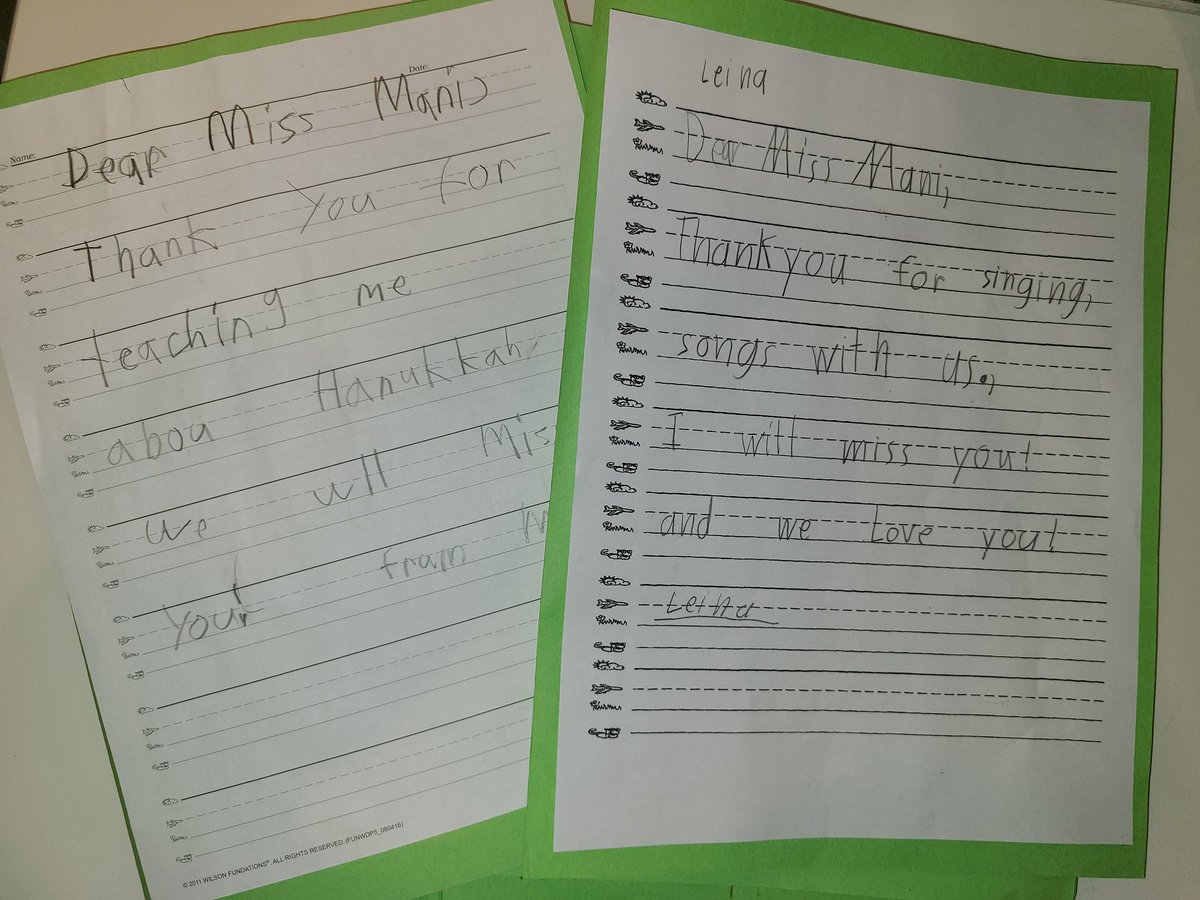 Name:
Date:
Dear Miss Mani
Thank you for
teaching me
abou Hanukkah
we wll Mis
you! from M
© 2011 WILSON FUNDATIONS®. ALL RIGHTS RESERVED. (FUNWDP5_080416)
Leina
Dear Miss Mani,
Thank you for singing,
songs with us.,
I will miss you!
and we Love you!
Leina